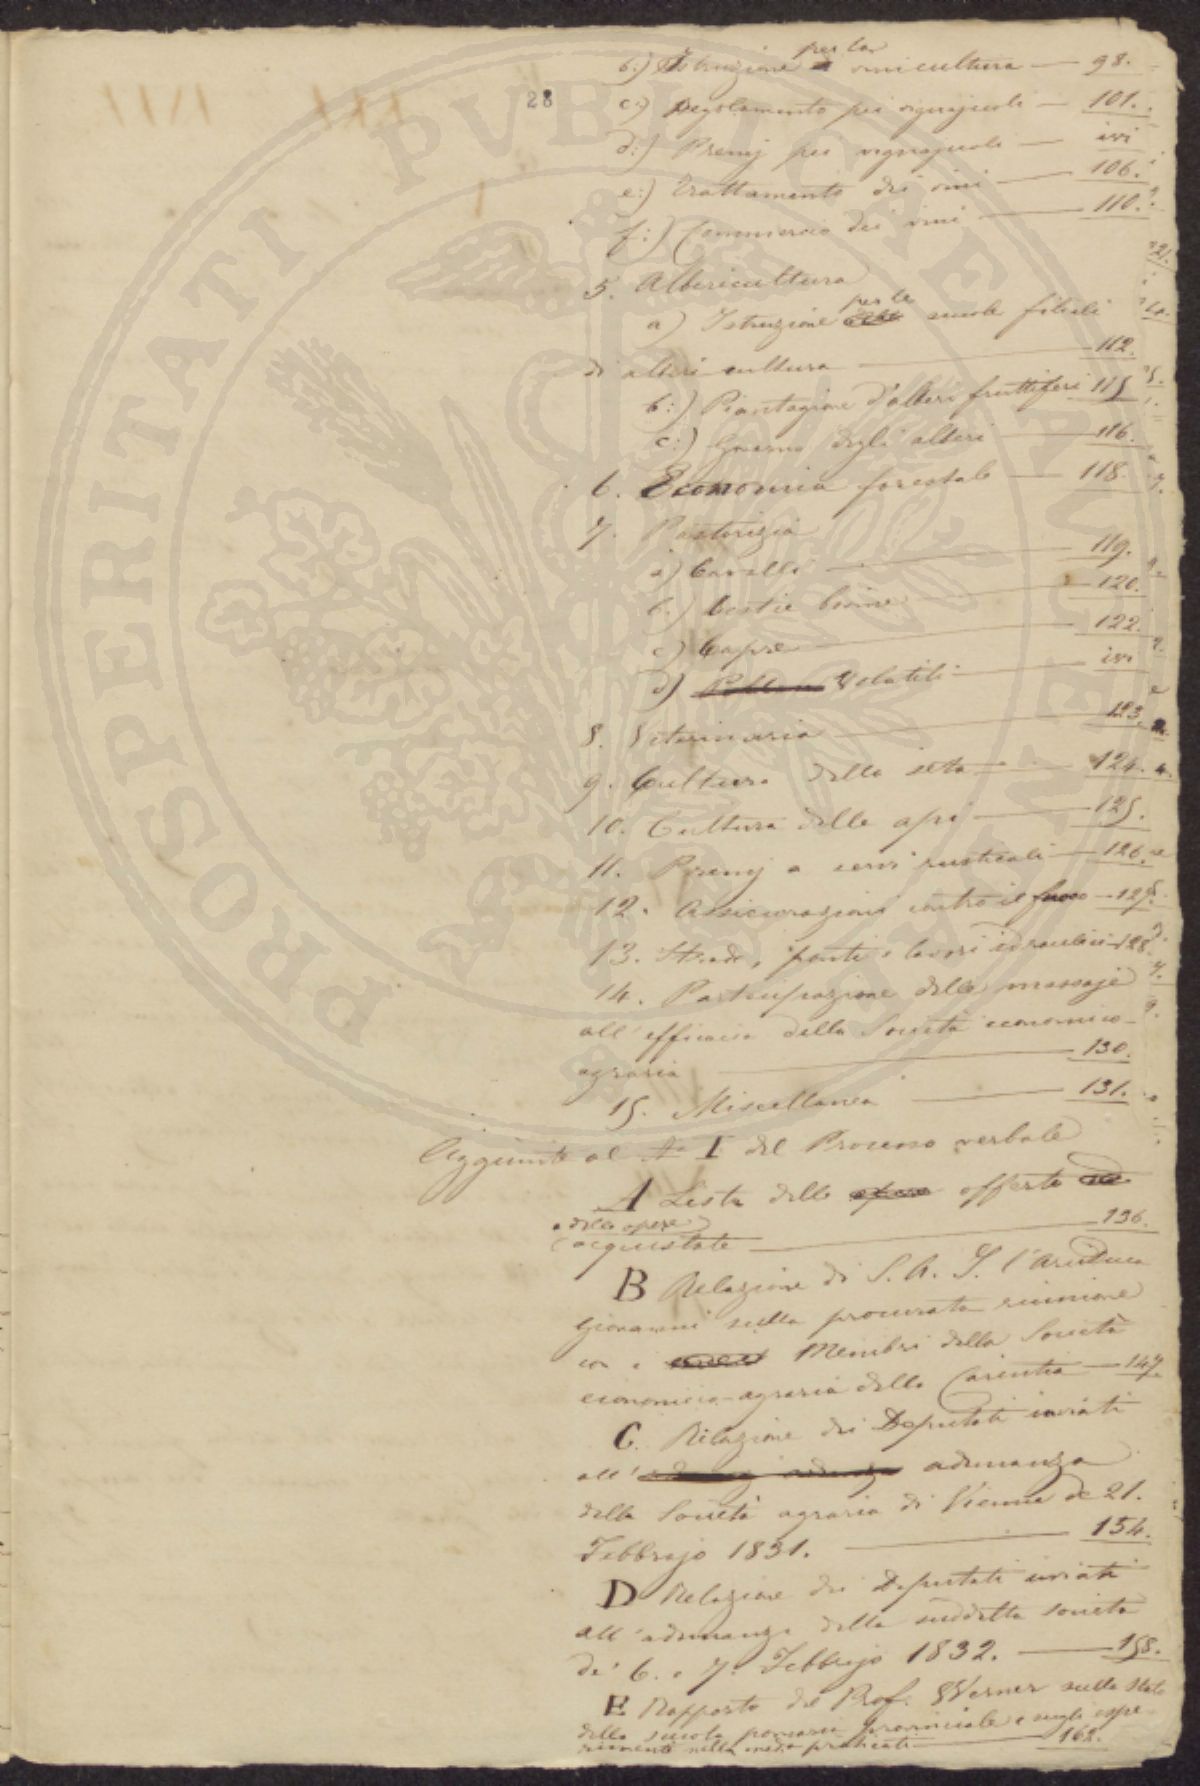 per la
b.) Istruzione vinicultura — 98.
28 c.) Regolamento pei vignajuoli — 101.
d.) Premj pei vignajuoli — ivi
e.) Trattamento dei vini — 106.
f.) Commercio dei vini — 110.
5. Albericultura
per le
a) Istruzione scuole filiali
di albericultura — 112.
b.) Piantagione d'alberi fruttiferi 115
c.) Governo degli alberi — 116.
6. Economia forestale — 118.
7. Pastorizia
a) Cavalli — 119.
b.) bestie bovine — 120.
c) Capre — 122.
d) Volatili — ivi
8. Veterinaria — 123.
9. Cultura della seta — 124.
10. Cultura delle api — 125.
11. Premj a servi rusticali — 126.
12. Assicurazioni contro il fuoco — 127.
13. Strade, ponti e lavori idraulici — 128.
14. Partecipazione delle massaje
all'efficacia della Società economico-
agraria — 130.
15. Miscellanea — 131.
Aggiunte al No I del Processo verbale
A Lista delle offerte
e delle opere
acquistate — 136.
B Relazione di S. A. I. l'Arciduca
Giovanni sulla procurata riunione
con i Membri della Società
economico-agraria della Carintia — 147.
C. Relazione dei Deputati inviati
all' adunanza
della Società agraria di Vienna de 21.
Febbrajo 1831. — 154.
D Relazione dei Deputati inviati
all'adunanza della suddetta società
de' 6. e 7. Febbrajo 1832. — 158.
E Rapporto del Prof. Werner sullo stato
della scuola pomaria provinciale e sugli espe-
rimenti nella med.a praticati — 162.
PROSPERITATI PVBLICAE AVGENDAE